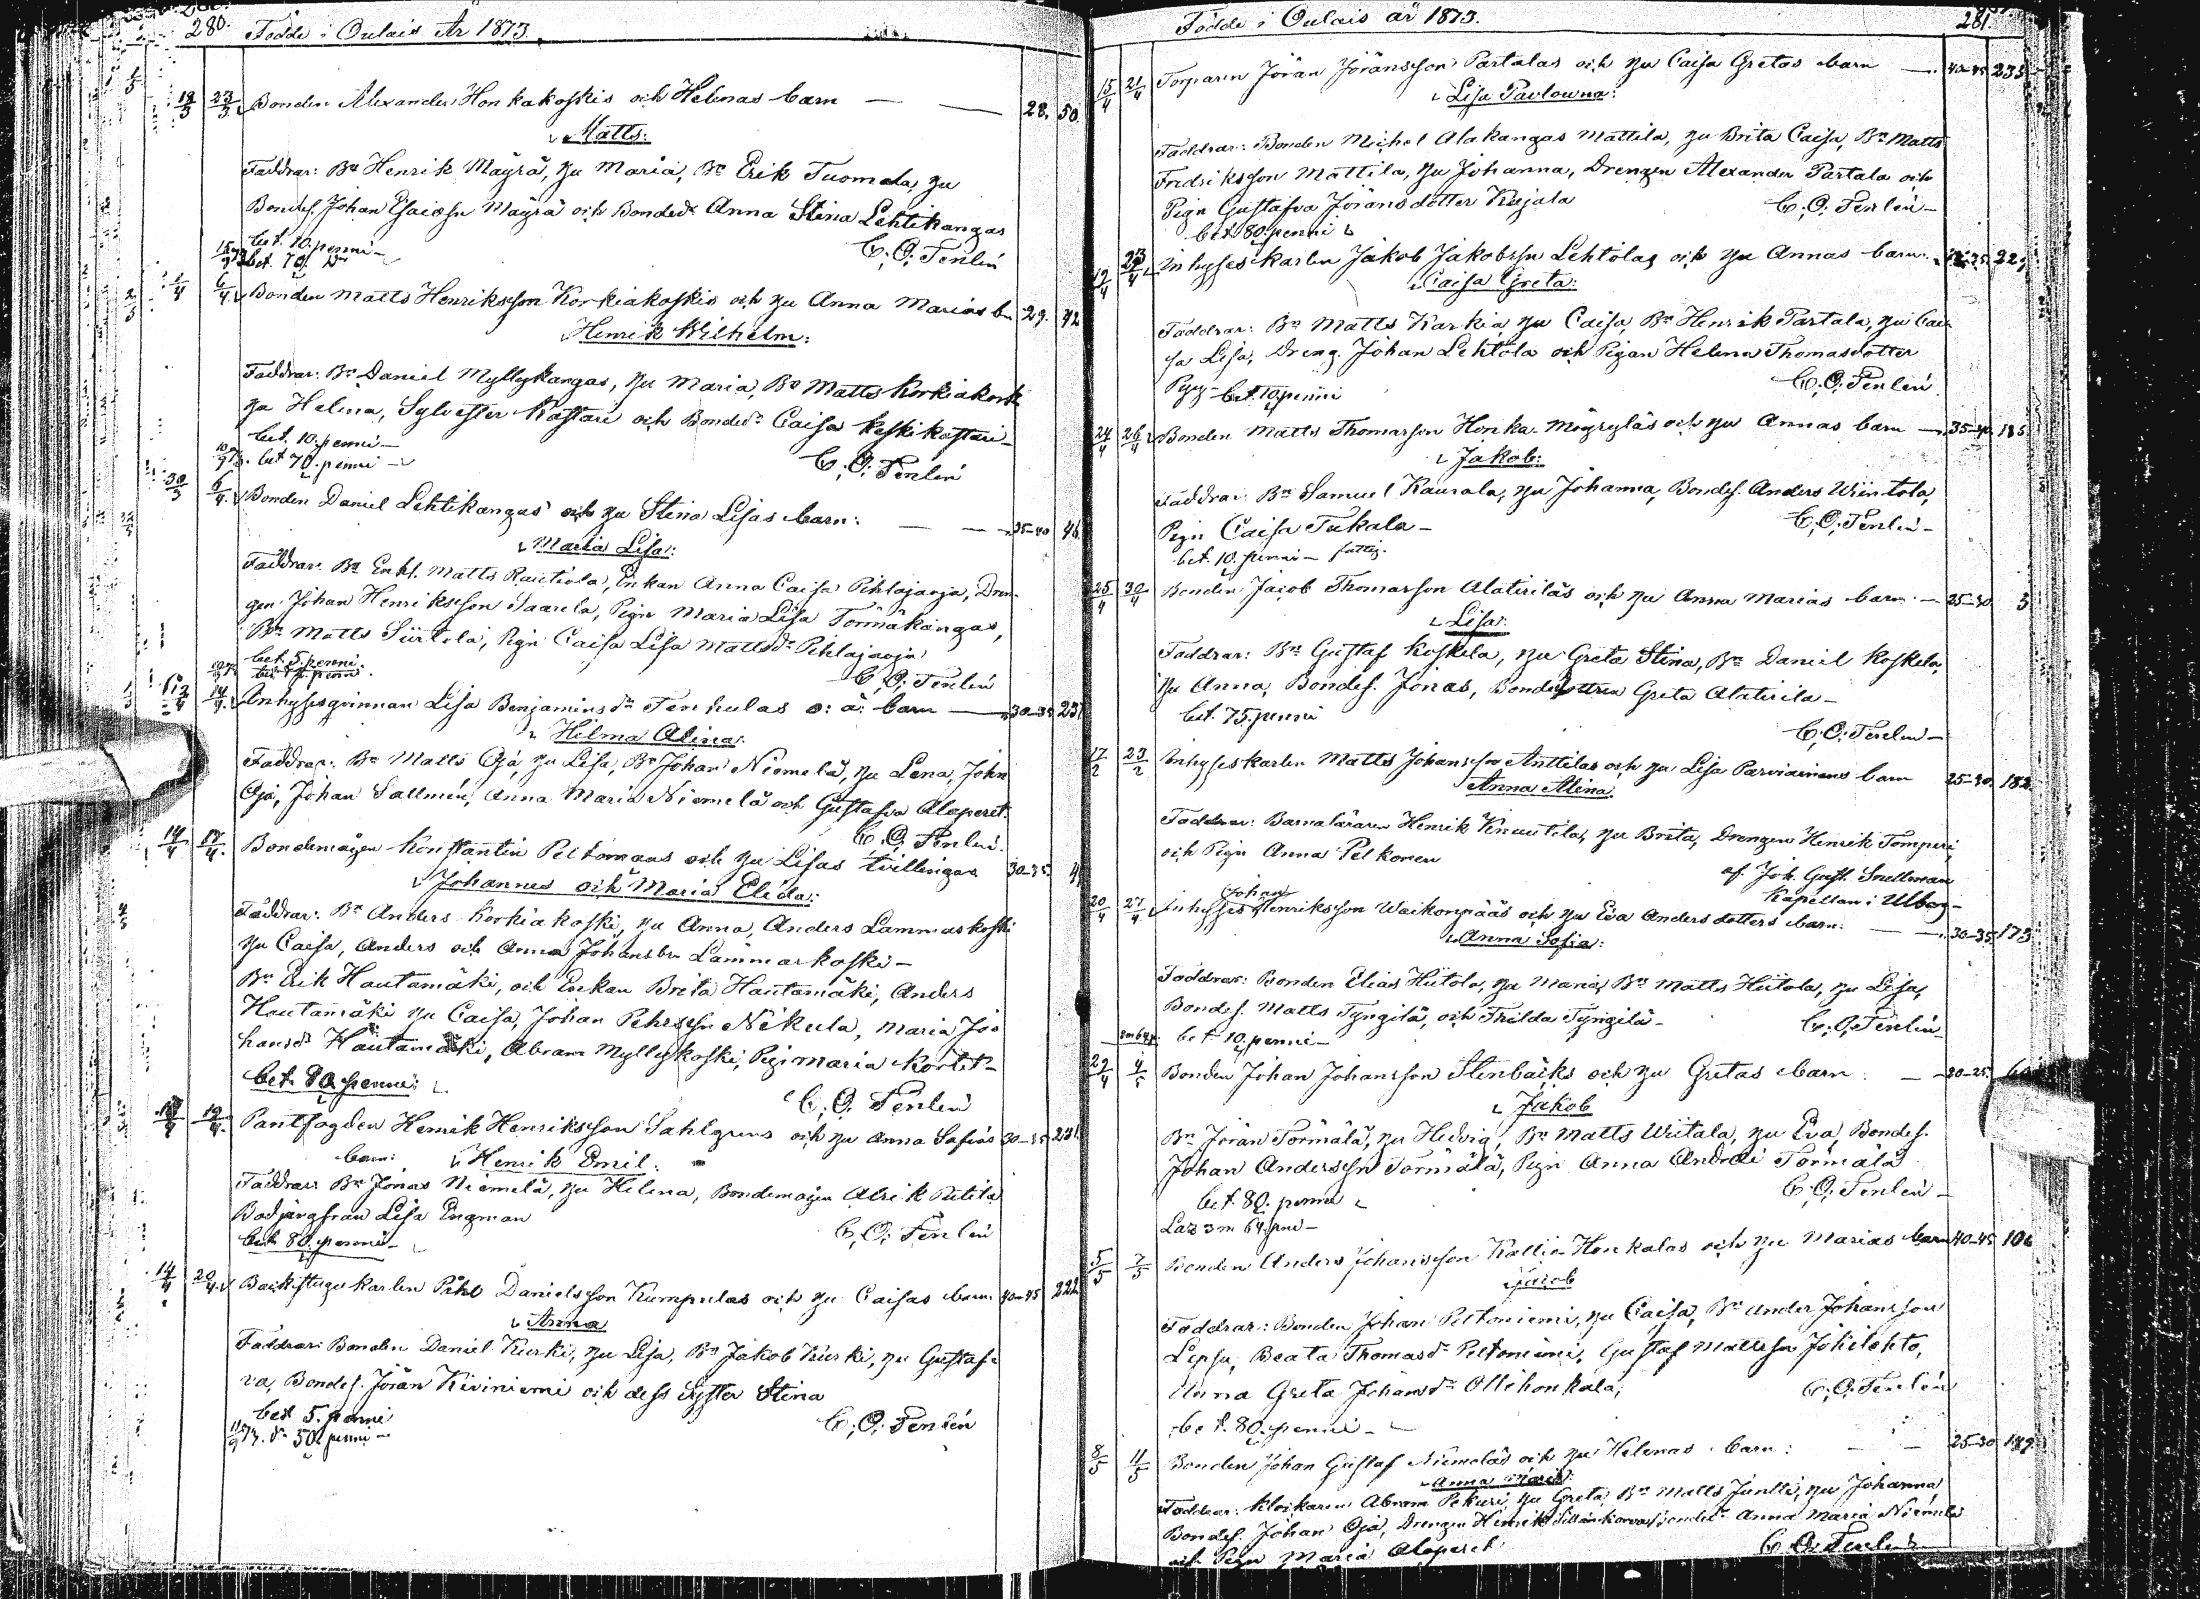 280. Födde i Oulais År 1873.
19/3 23/3 Bonden Alexander Honkakoskis och Helenas barn — 28. 50
Matts:
Faddrar: Bn Henrik Mäyrä, hu Maria, Bn Erik Tuomala, hu
Bondes. Johan Esaiasson Mäyrä och Bonded: Anna Stina Lehtikangas
bet. 10. penni C. O. Fenlén
bet. 70. Dn
1/4 6/4 Bonden Matts Henriksson Korkiakoskis och hu Anna Marias b. 29. 42
Henrik Wilhelm:
Faddrar: Bn Daniel Myllykangas, hu Maria, Bn Matts Korkiakoski
hu Helena, Sylvester Kastari och Bonded: Caisa Keskikastari
bet. 10. penni
bet 70. penni C. O. Fenlén
30/3 6/4 Bonden Daniel Lehtikangas och hu Stina Lisas barn: 35-40 46
Maria Lisa:
Faddrar: Bn Enkl. Matts Rautiola, Enkan Anna Caisa Pihlajaoja, Dren-
gen Johan Henriksson Saarela, Pign Maria Lisa Törmäkangas,
Bn Matts Siirtola, Pign Caisa Lisa Mattsdr Pihlajaoja
bet. 5. penni C. O. Fenlén
14/4 Inhysesqvinnan Lisa Benjaminsdr Fenkulas o: ä: barn 30-35 231
Hilma Alina:
Faddrar: Bn Matts Oja, hu Lisa, Bn Johan Niemelä, hu Lena, John
Oja, Johan Sallmén, Anna Maria Niemelä och Gustafva Alaperet.
C. O. Fenlén
14/4 17/4 Bondemågen Konstantin Peltomaas och hu Lisas tvillingar 30-35
Johannes och Maria Elida:
Faddrar: Bn Anders Korkiakoski, hu Anna, Anders Lammaskoski
hu Caisa, Anders och Anna Johansbn Lammaskoski
Bn Erik Hautamäki, och Enkan Brita Hautamäki, Anders
Hautamäki hu Caisa, Johan Pehrsson Nikula, Maria Jo-
hansdr Hautamäki, Abram Myllykoski, Pign Maria Kortet
bet. 80. penni: C. O. Fenlén
19/4 Pantfogden Henrik Henriksson Sahlgrens och hu Anna Sofias 30-35 231
barn: Henrik Emil:
Faddrar: Bn Jonas Niemelä, hu Helena, Bondemågen Alrik Putila
Bodjungfran Lisa Engman
bet 80. penni C. O. Fenlén
14/4 20/4 Backstugukarlen Pehr Danielsson Kumpulas och hu Caisas barn 40-45 222
Anna
Faddrar: Bonden Daniel Kurki, hu Lisa, Bn Jakob Kurki, hu Gustaf-
va, Bondes. Jöran Kiviniemi och dess syster Stina
bet 5. penni C. O. Fenlén
dn 50 penni
Födde i Oulais år 1873. 281.
15/4 21/4 Torparen Jöran Jöransson Partalas och hu Caisa Gretas barn 40-45 235
Lisa Paulowna:
Faddrar: Bonden Michel Alakangas Mattila, hu Brita Caisa, Bn Matts
Fredriksson Mattila, hu Johanna, Drengen Alexander Partala och
Pign Gustafva Jöransdotter Kujala C. O. Fenlén
bet 80. penni
19/4 23/4 Inhyseskarlen Jakob Jakobsson Lehtolas och hu Annas barn. 229
Caisa Greta:
Faddrar: Bn Matts Karkia, hu Caisa, Bn Henrik Partala, hu Cai-
sa Lisa, Dreng. Johan Lehtola och Pigan Helena Thomasdotter
Pyy bet. 10 penni C. O. Fenlén
24/4 26/4 Bonden Matts Thomasson Honka-Möyryläs och hu Annas barn 35-40 185
Jakob:
Faddrar: Bn Samuel Kaurala, hu Johanna, Bondes. Anders Wiintola,
Pign Caisa Tukala C. O. Fenlén
bet. 10. penni fattig.
25/4 30/4 Bonden Jacob Thomasson Alatiriläs och hu Anna Marias barn 25-30 3
Lisa:
Faddrar: Bn Gustaf Koskela, hu Greta Stina, Bn Daniel Koskela,
hu Anna, Bondes. Jonas, Bondedottren Greta Alatirila
bet. 75. penni C. O. Fenlén
17/2 23/2 Inhyseskarlen Matts Johansson Anttilas och hu Lisa Parviainens barn 25-30. 182
Anna Alina
Faddrar: Barnaläraren Henrik Knuutila, hu Brita, Drengen Henrik Tomperi,
och Pign Anna Pelkonen af Joh. Gust. Snellman
Kapellan i Uleåborg
20/4 27/4 Inhyses Johan Henriksson Waikonpääs och hu Eva Andersdotters barn: 30-35. 173
Anna Sofia:
Faddrar: Bonden Elias Hiitola, hu Maria, Bn Matts Hiitola, hu Lisa,
Bondes. Matts Tyngilä, och Thilda Tyngilä C. O. Fenlén
bet 10. penni
29/4 4/5 Bonden Johan Johansson Stenbäcks och hu Gretas barn: 20-25.
Jakob
Bn Jöran Törmälä, hu Hedvig, Bn Matts Wiitala, hu Eva, Bondes.
Johan Andersson Törmälä, Pign Anna Andrdr Törmälä
bet. 80. penni C. O. Fenlén
Laz 3 m 64. pni
5/5 7/5 Bonden Anders Johansson Kallio-Honkalas och hu Marias barn 40-45 106
Jacob
Faddrar: Bonden Johan Peltoniemi, hu Caisa, Bn Anders Johansson
Leppä, Beata Thomasdr Peltoniemi, Gustaf Mattsson Jokilehto,
Anna Greta Johansdr Ollihonkala, C. O. Fenlén
bet. 80. penni
8/5 11/5 Bonden Johan Gustaf Niemeläs och hu Helenas barn: 25-30 189
Anna Maria:
Faddrar: Klockaren Abram Pekuri, hu Greta, Bn Matts Juntti, hu Johanna
Bondes. Johan Oja, Drengen Henrik Sillankorva, Bonded: Anna Maria Niemelä
och Pign Maria Alaperet C. O. Fenlén